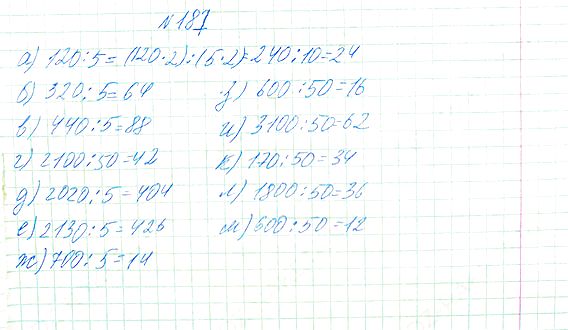 №187
а) 120:5=(120·2):(5·2)=240:10=24
б) 320:5=64
з) 600:50=16
в) 440:5=88
и) 3100:50=62
г) 2100:50=42
к) 170:50=34
д) 2020:5=404
л) 1800:50=36
е) 2130:5=426
м) 600:50=12
ж) 700:5=14